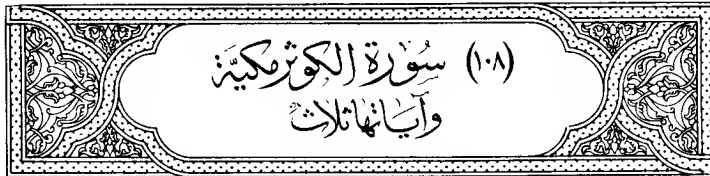 (١٠٨) سُورَة الكوثر مكيَّة
وآياتها ثلاث